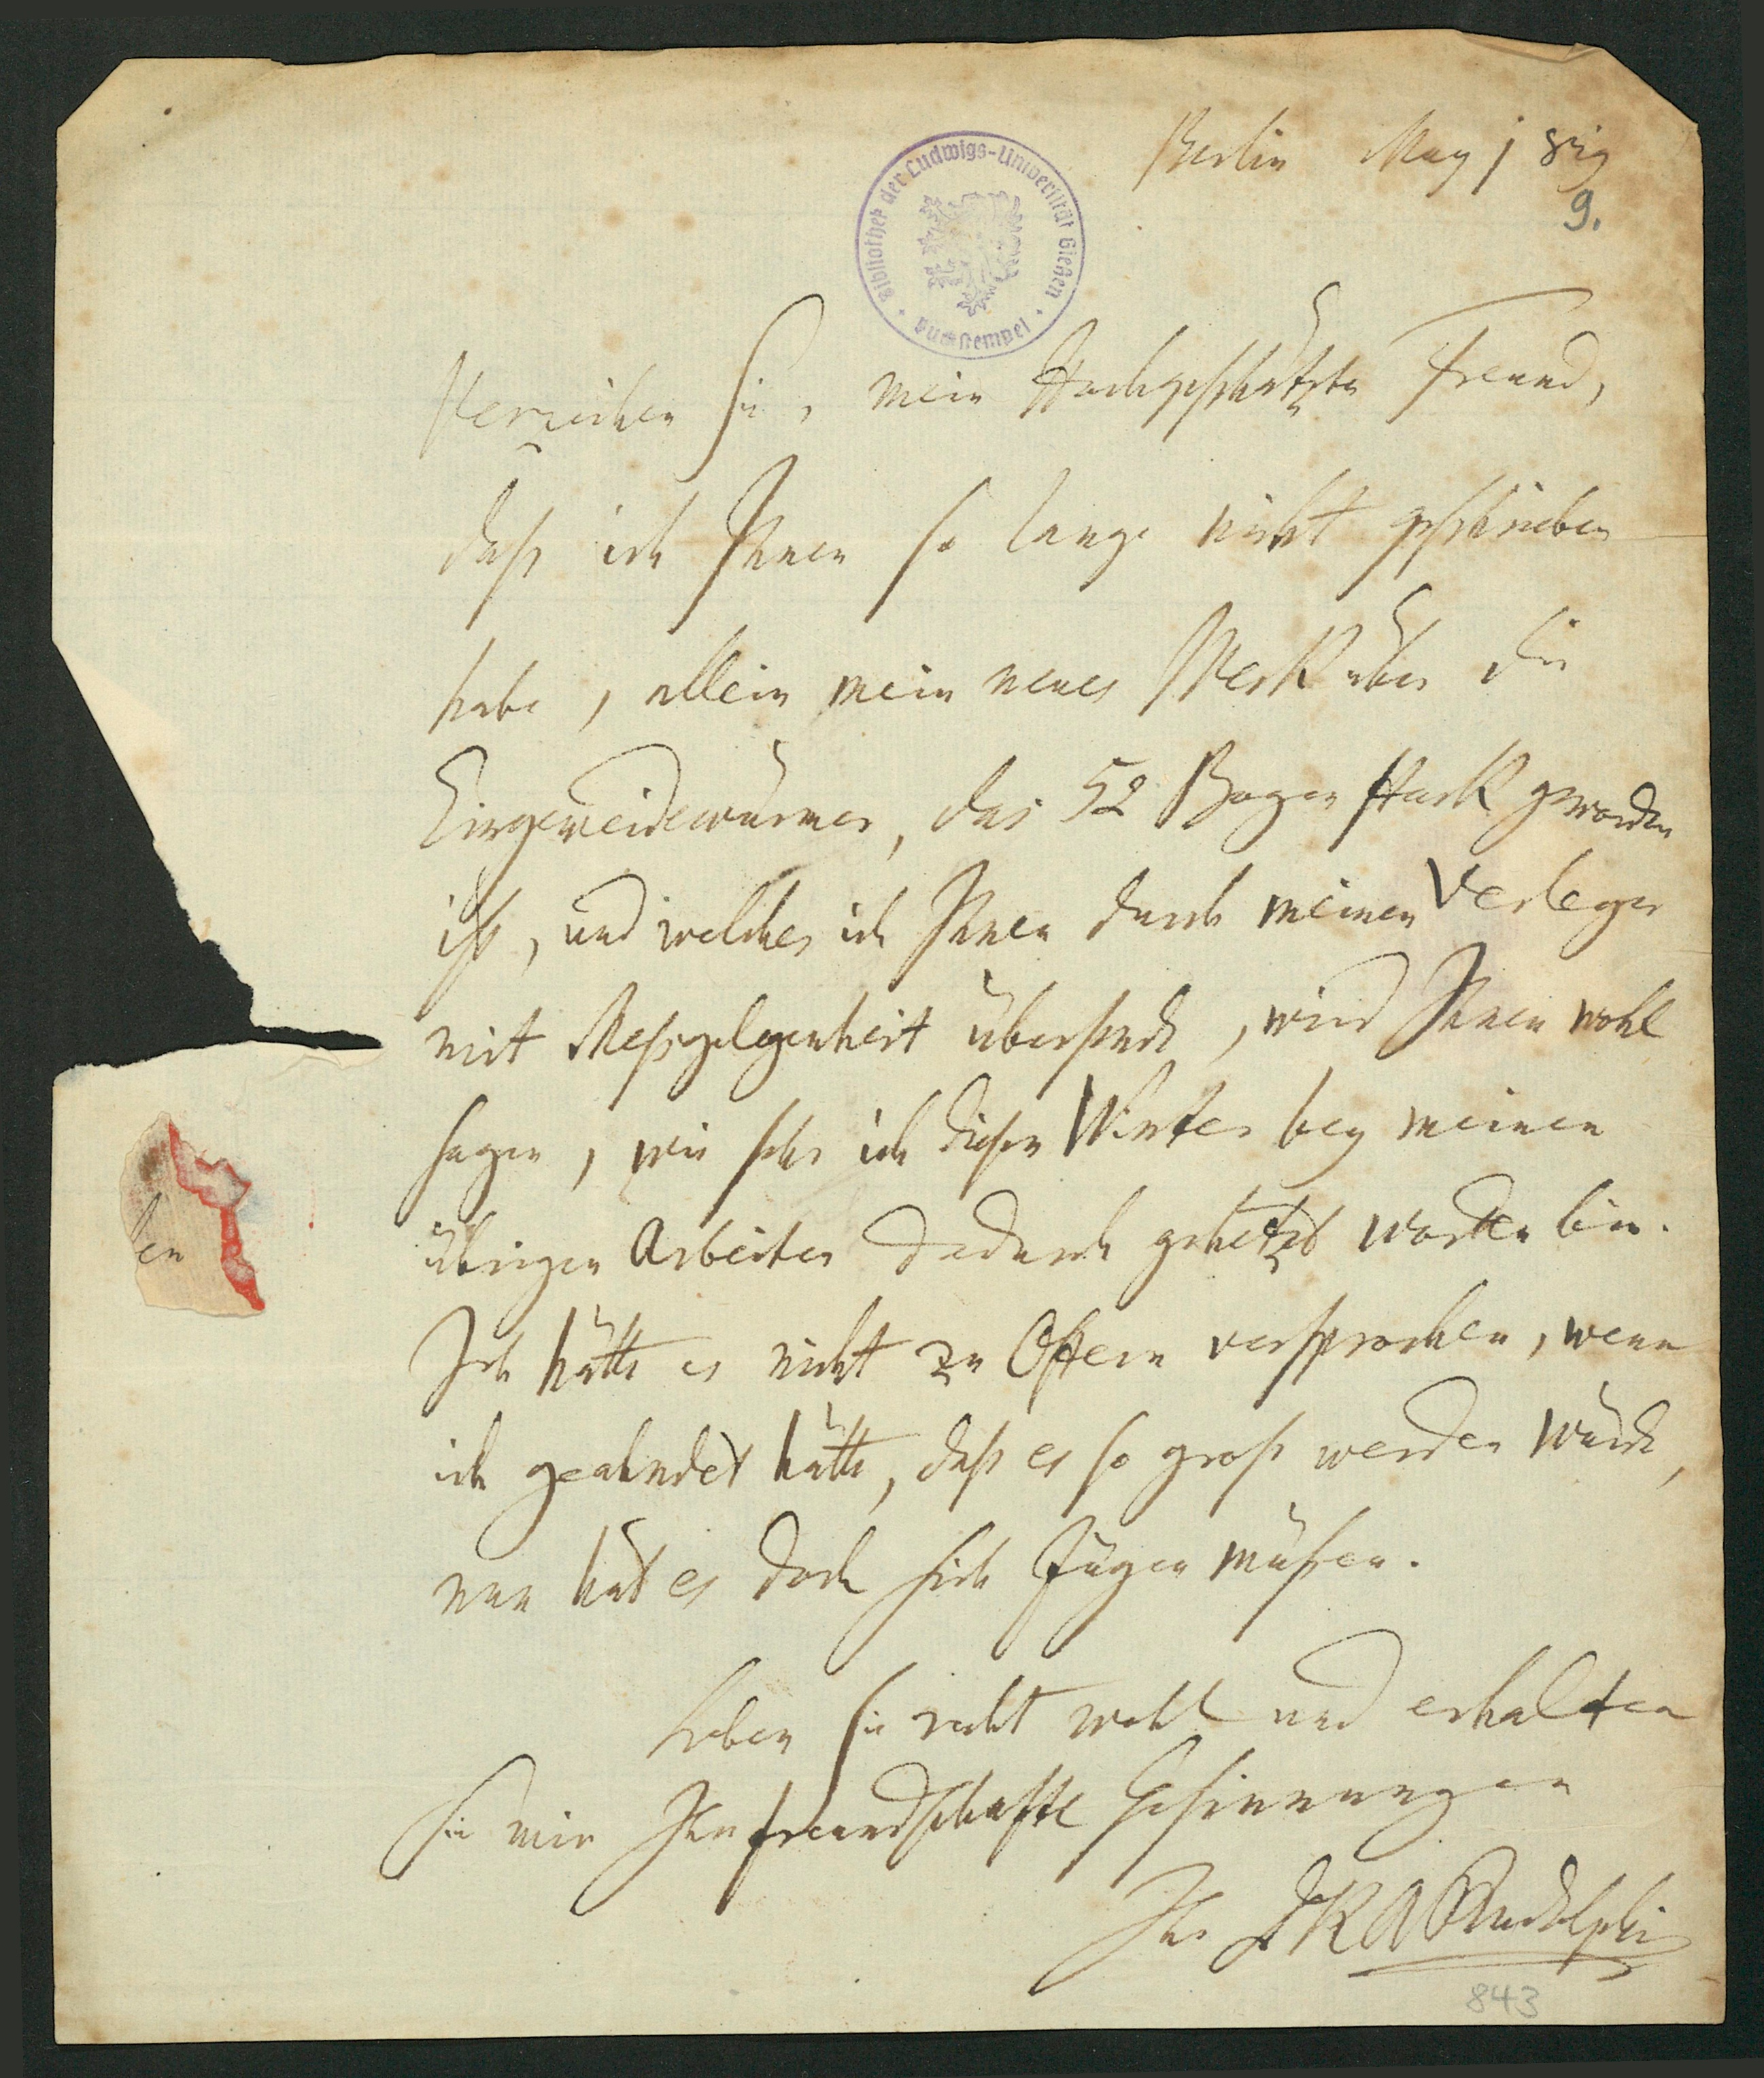 Berlin May 1 819
9.
Bibliothek der Ludwigs-Universität Gießen
Buchstempel
Verzeihen Sie, mein Hochgeschätzter Freund,
daß ich Ihnen so lange nicht geschrieben
habe, allein mein neues Werk über die
Eingeweidewürmer, das 52 Bogen stark geworden
ist, und welches ich Ihnen durch meinen Verleger
mit Meßgelegenheit übersende, wird Ihnen wohl
sagen, wie sehr ich diesen Winter bey meinen
übrigen Arbeiten dadurch gehetzt worden bin.
Ich hätte es nicht zu Ostern versprochen, wenn
ich geahndet hätte, daß es so groß werden würde,
nun hat es doch sich fügen müßen.
Leben Sie recht wohl und erhalten
Sie mir Ihre freundschaftl Gesinnungen
Ihr D K A Rudolphi
843
en